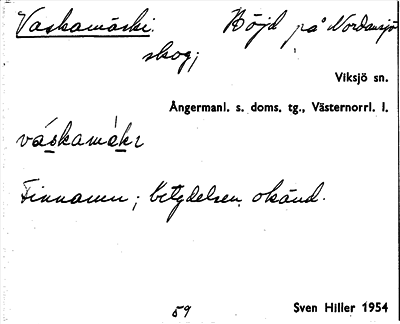 Vaskamäski. Höjd på Nordansjö
skog;
Viksjö sn.
Ångermanl. s. doms. tg., Västernorrl. l.
váskamàkı
Finnamn; betydelsen okänd.
59 Sven Hiller 1954